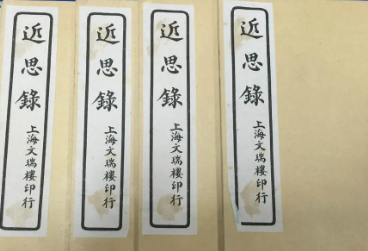 近思錄
上海文瑞樓印行
近思錄
上海文瑞樓印行
近思錄
上海文瑞樓印行
近思錄
上海文瑞樓印行